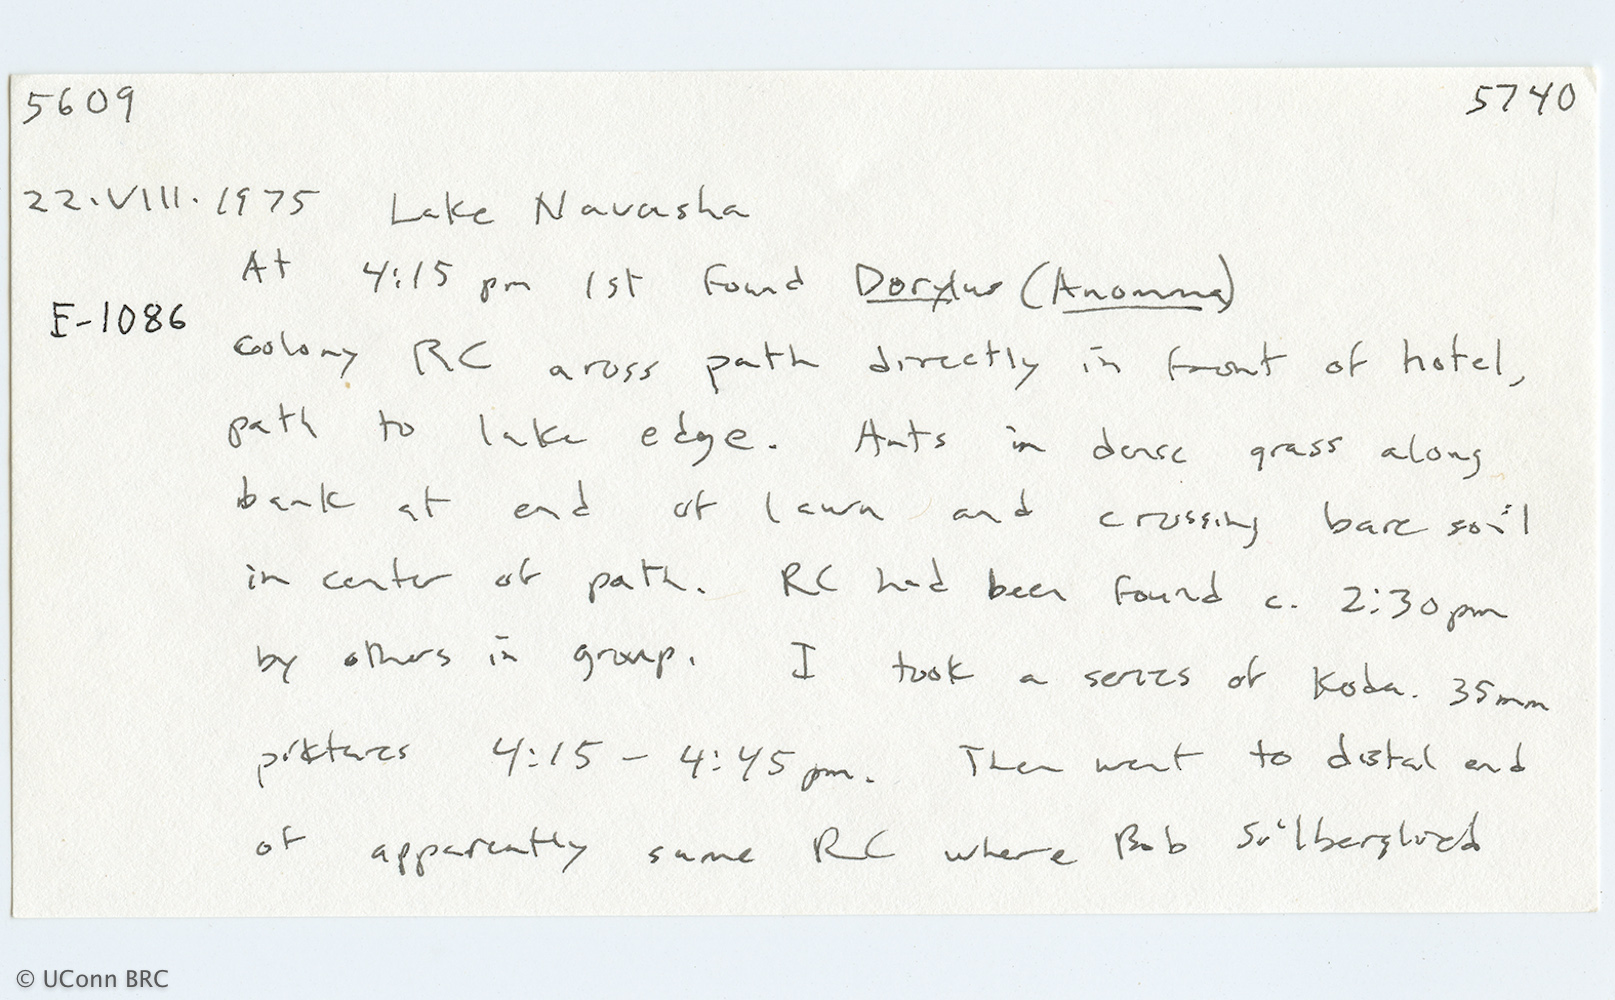 5609 5740
22.VIII.1975 Lake Navasha
At 4:15 pm 1st found Dorylus (Anomma)
E-1086
colony RC aross path directly in front of hotel,
path to lake edge. Ants in dense grass along
bank at end of lawn and crossing bare soil
in center of path. RC had been found c. 2:30pm
by others in group. I took a series of Koda. 35mm
pictures 4:15 - 4:45pm. Then went to distal end
of apparently same RC where Bob Silberglied
© UConn BRC